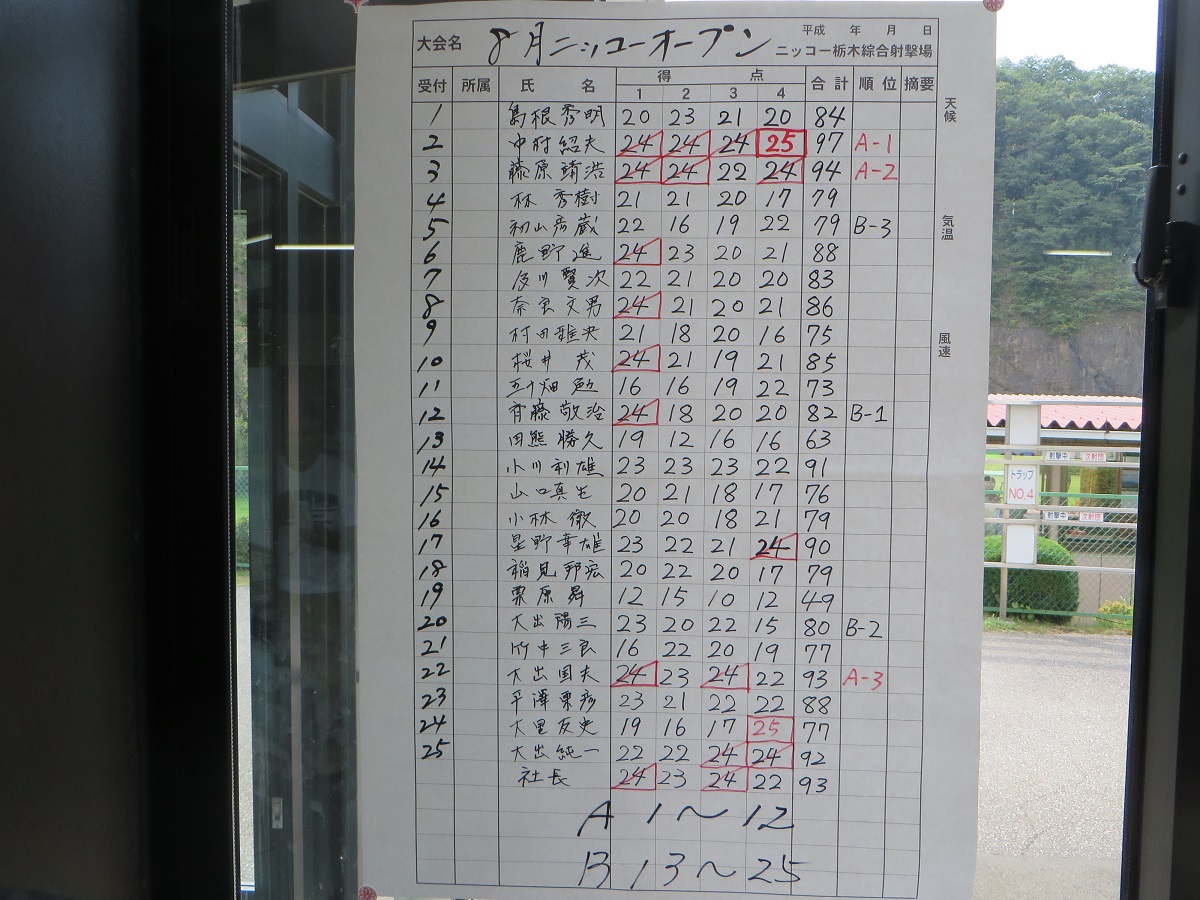 大会名 8月ニッコーオープン 平成 年 月 日
ニッコー栃木綜合射撃場
受付 所属 氏 名 得 点 合計 順位 摘要
1 2 3 4
1 島根秀明 20 23 21 20 84
2 中村紹夫 24 24 24 25 97 A-1
3 藤原靖浩 24 24 22 24 94 A-2
4 林 秀樹 21 21 20 17 79
5 初山彦蔵 22 16 19 22 79 B-3
6 鹿野進 24 23 20 21 88
7 及川賢次 22 21 20 20 83
8 奈良文男 24 21 20 21 86
9 村田雅央 21 18 20 16 75
10 桜井 茂 24 21 19 21 85
11 五十畑勉 16 16 19 22 73
12 斉藤敬治 24 18 20 20 82 B-1
13 田熊勝久 19 12 16 16 63
14 小川利雄 23 23 23 22 91
15 山口真生 20 21 18 17 76
16 小林 徹 20 20 18 21 79
17 星野幸雄 23 22 21 24 90
18 稲見邦宏 20 22 20 17 79
19 栗原昇 12 15 10 12 49
20 大出陽三 23 20 22 15 80 B-2
21 竹中三良 16 22 20 19 77
22 大出国夫 24 23 24 22 93 A-3
23 平澤栗彦 23 21 22 22 88
24 大里友史 19 16 17 25 77
25 大出純一 22 22 24 24 92
社長 24 23 24 22 93
A 1〜12
B 13〜25
天候
気温
風速
射撃中 次射団
トラップ
NO,4
射撃中 次射団